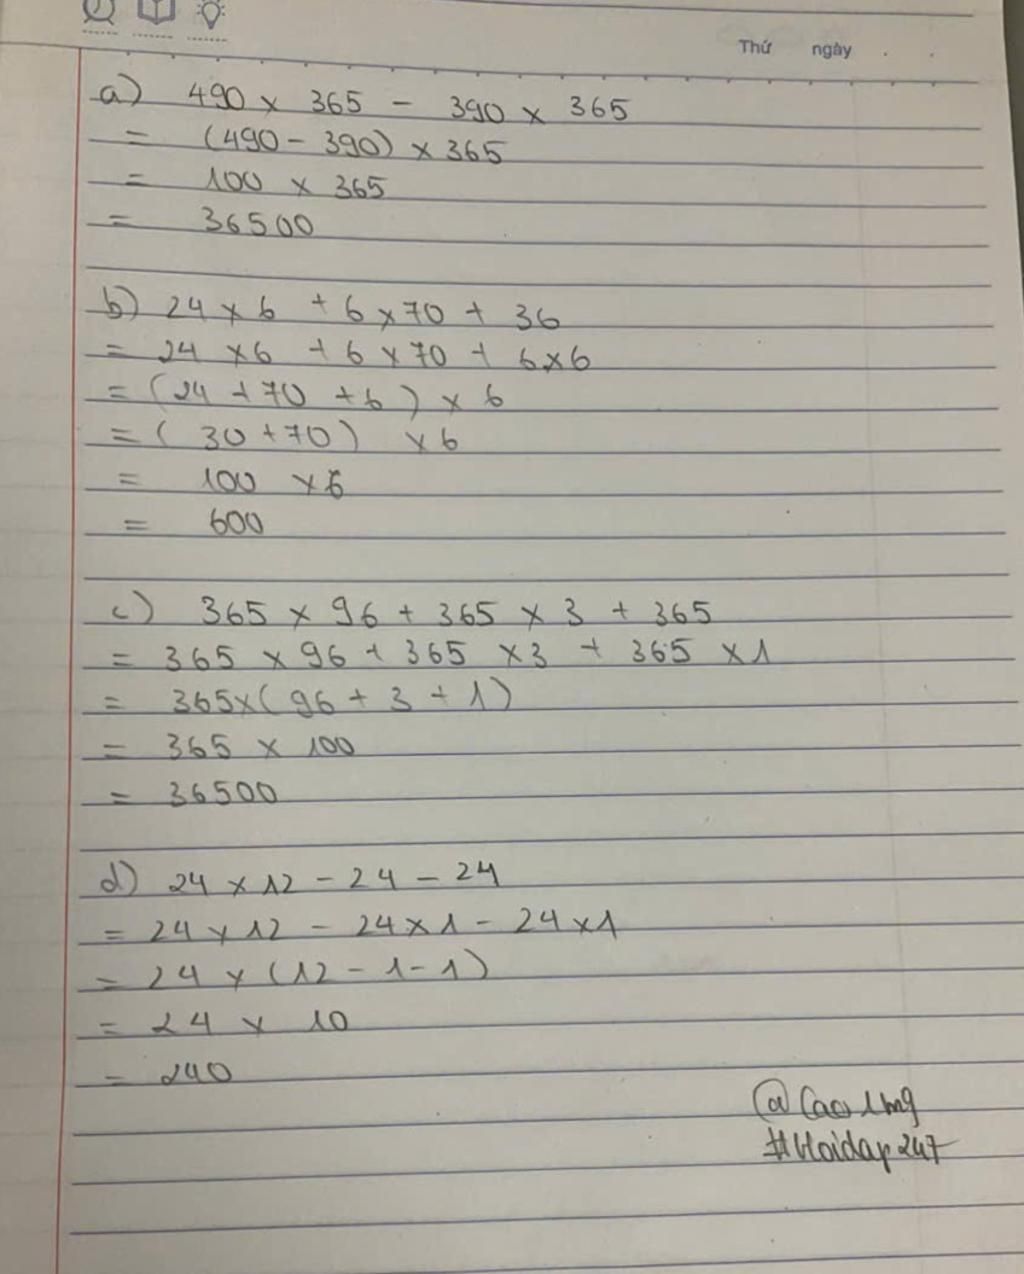 Thứ ngày
a) 490 x 365 - 390 x 365
= (490 - 390) x 365
= 100 x 365
= 36500
b) 24 x 6 + 6 x 70 + 36
= 24 x 6 + 6 x 70 + 6 x 6
= (24 + 70 + 6) x 6
= (30 + 70) x 6
= 100 x 6
= 600
c) 365 x 96 + 365 x 3 + 365
= 365 x 96 + 365 x 3 + 365 x 1
= 365 x (96 + 3 + 1)
= 365 x 100
= 36500
d) 24 x 12 - 24 - 24
= 24 x 12 - 24 x 1 - 24 x 1
= 24 x (12 - 1 - 1)
= 24 x 10
= 240
#Hoidap247